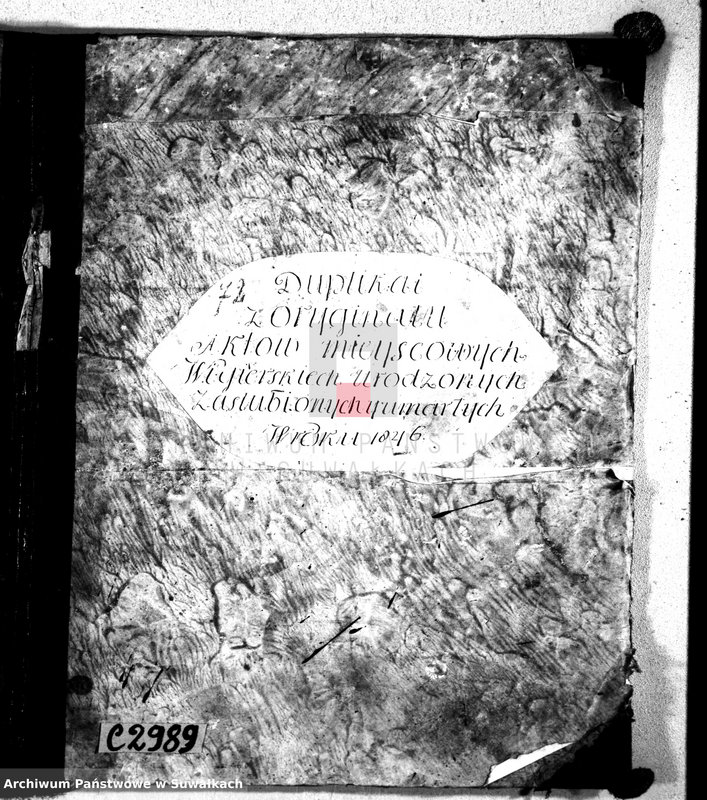 Duplikat
z oryginału
Aktów mieyscowych
Wiżierskiech Urodzonych
Zaslubionych y umarłych
W roku 1846.
ARCHIWUM PAŃSTWOWE
W SUWAŁKACH
C2989
Archiwum Państwowe w Suwałkach